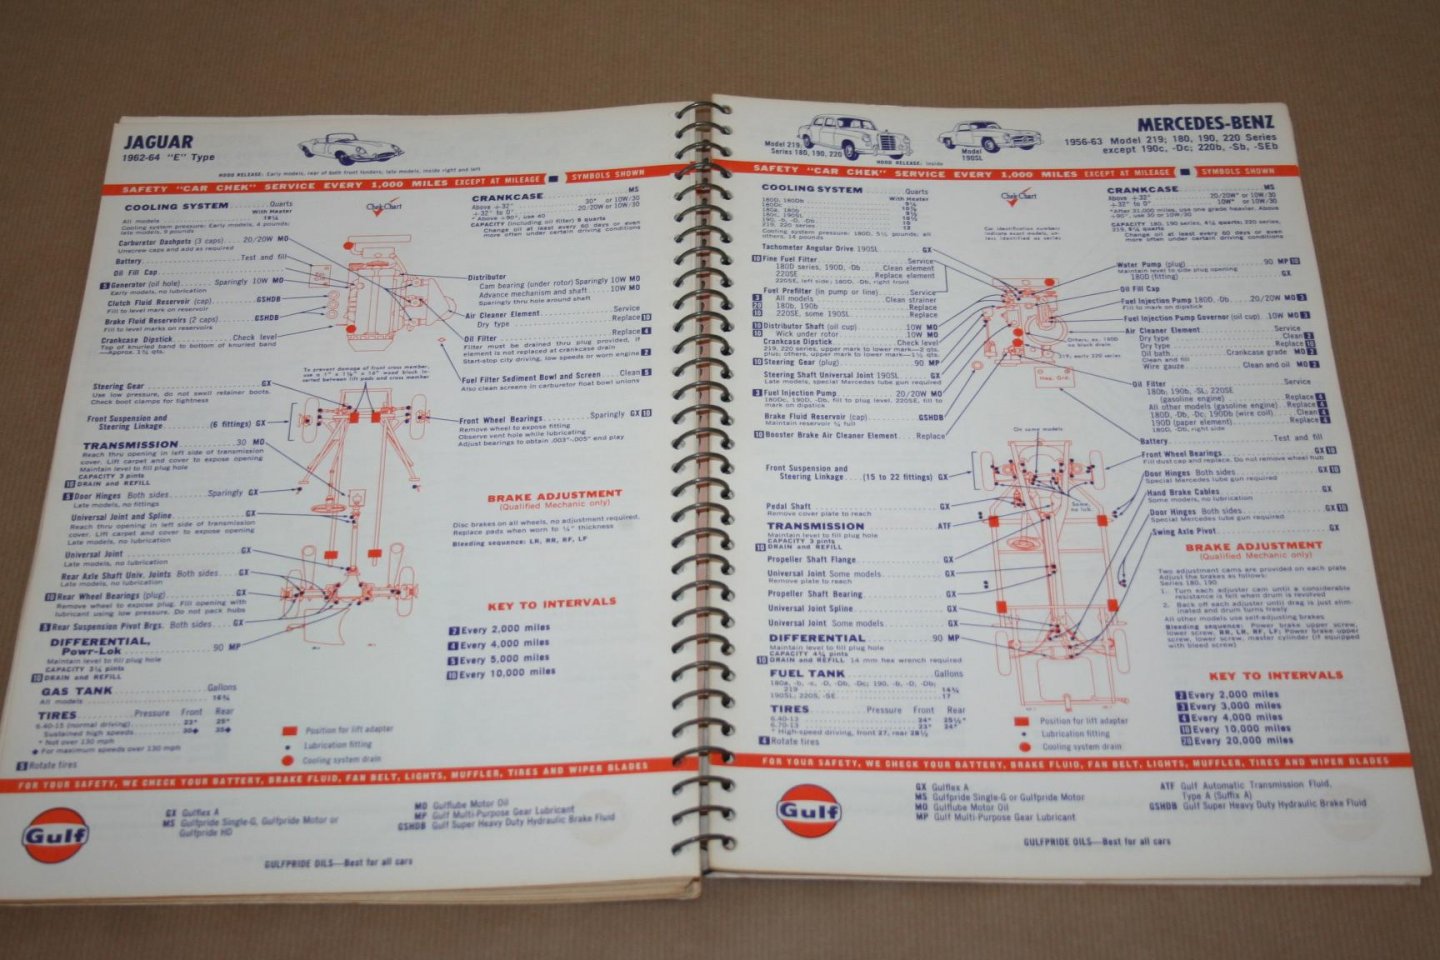 JAGUAR
1962-64 "E" Type
HOOD RELEASE: Early models, rear of both front fenders; late models, inside right and left
SAFETY "CAR CHEK" SERVICE EVERY 1,000 MILES EXCEPT AT MILEAGE SYMBOLS SHOWN
COOLING SYSTEM Quarts
With Heater
All models
Cooling system pressure: Early models, 4 pounds;
late models, 9 pounds
Carburetor Dashpots (3 caps) 20/20W MO
Unscrew caps and add as required
Battery Test and fill
Oil Fill Cap
5 Generator (oil hole) Sparingly 10W MO
Early models, no lubrication
Clutch Fluid Reservoir (cap) GSHDB
Fill to level mark on reservoir
Brake Fluid Reservoirs (2 caps) GSHDB
Fill to level marks on reservoirs
Crankcase Dipstick Check level
Top of knurled band to bottom of knurled band
—Approx. 1¾ qts.
Chek-Chart
CRANKCASE MS
Above +32° 30* or 10W/30
+32° to 0° 20/20W or 10W/30
* Above +90°, use 40
CAPACITY (including oil filter) 9 quarts
Change oil at least every 60 days or even
more often under certain driving conditions
Distributor
Cam bearing (under rotor) Sparingly 10W MO
Advance mechanism and shaft 10W MO
Sparingly thru hole around shaft
Air Cleaner Element Service
Dry type Replace 10
Oil Filter Replace 4
Filter must be drained thru plug provided, if
element is not replaced at crankcase drain
Start-stop city driving, low speeds or worn engine 2
Fuel Filter Sediment Bowl and Screen Clean 5
Also clean screens in carburetor float bowl unions
To prevent damage of front cross member,
use a 7" x 1⅛" x 18" wood block in-
serted between lift pads and cross member
Steering Gear GX
Use low pressure, do not swell retainer boots.
Check boot clamps for tightness
Front Suspension and
Steering Linkage (6 fittings) GX
TRANSMISSION 30 MO
Reach thru opening in left side of transmission
cover. Lift carpet and cover to expose opening
Maintain level to fill plug hole
CAPACITY 3 pints
10 DRAIN and REFILL
5 Door Hinges Both sides Sparingly GX
Late models, no fittings
Universal Joint and Spline GX
Reach thru opening in left side of transmission
cover. Lift carpet and cover to expose opening
Late models, no lubrication
Universal Joint GX
Late models, no lubrication
Rear Axle Shaft Univ. Joints Both sides GX
Late models, no lubrication
10 Rear Wheel Bearings (plug) GX
Remove wheel to expose plug. Fill opening with
lubricant using low pressure. Do not pack hubs
5 Rear Suspension Pivot Brgs. Both sides GX
DIFFERENTIAL,
Powr-Lok 90 MP
Maintain level to fill plug hole
CAPACITY 3¼ pints
10 DRAIN and REFILL
GAS TANK Gallons
All models 16¾
TIRES Pressure Front Rear
6.40-15 (normal driving) 23* 25*
Sustained high speeds 30◆ 35◆
* Not over 130 mph
◆ For maximum speeds over 130 mph
5 Rotate tires
Front Wheel Bearings Sparingly GX 10
Remove wheel to expose fitting
Observe vent hole while lubricating
Adjust bearings to obtain .003"-.005" end play
BRAKE ADJUSTMENT
(Qualified Mechanic only)
Disc brakes on all wheels, no adjustment required.
Replace pads when worn to ¼" thickness
Bleeding sequence: LR, RR, RF, LF
KEY TO INTERVALS
2 Every 2,000 miles
4 Every 4,000 miles
5 Every 5,000 miles
10 Every 10,000 miles
Position for lift adapter
Lubrication fitting
Cooling system drain
FOR YOUR SAFETY, WE CHECK YOUR BATTERY, BRAKE FLUID, FAN BELT, LIGHTS, MUFFLER, TIRES AND WIPER BLADES
Gulf
GX Gulflex A
MS Gulfpride Single-G, Gulfpride Motor or
Gulfpride HD
MO Gulflube Motor Oil
MP Gulf Multi-Purpose Gear Lubricant
GSHDB Gulf Super Heavy Duty Hydraulic Brake Fluid
GULFPRIDE OILS—Best for all cars
Model 219,
Series 180, 190, 220
Model
190SL
HOOD RELEASE: Inside
MERCEDES-BENZ
1956-63 Model 219; 180, 190, 220 Series
except 190c, -Dc; 220b, -Sb, -SEb
SAFETY "CAR CHEK" SERVICE EVERY 1,000 MILES EXCEPT AT MILEAGE SYMBOLS SHOWN
COOLING SYSTEM Quarts
With Heater
180D, 180Db
180Dc
180a, 180b
180c, 190SL
190, -b, -D, -Db
219, 220 series
Cooling system pressure: 180D, 5½ pounds; all
others, 14 pounds
Tachometer Angular Drive 190SL GX
10 Fine Fuel Filter Service
180D series, 190D, -Db Clean element
220SE Replace element
220SE, left side; 180D, -Db, right front
Fuel Prefilter (in pump or line) Service
3 All models Clean strainer
20 180b, 190b Replace
10 220SE, some 190SL Replace
10 Distributor Shaft (oil cup) 10W MO
10 Wick under rotor 10W MO
Crankcase Dipstick Check level
219, 220 series, upper mark to lower mark—2 qts.
plus; others, upper mark to lower mark—1½ qts.
10 Steering Gear (plug) 90 MP
Steering Shaft Universal Joint 190SL GX
Late models, special Mercedes tube gun required
3 Fuel Injection Pump 20/20W MO
180Dc, 190D, -Db, fill to plug level, 220SE, fill to
mark on dipstick
Brake Fluid Reservoir (cap) GSHDB
Maintain reservoir ¾ full
10 Booster Brake Air Cleaner Element Replace
Chek-Chart
Car identification numbers
indicate exact models, un-
less identified as series
CRANKCASE MS
Above +32° 20/20W* or 10W/30
+32° to 0° 10W* or 10W/30
*After 31,000 miles, use one grade heavier. Above
+90°, use 30 or 10W/30
CAPACITY 180, 190 series, 4¼ quarts; 220 series,
Change oil at least every 60 days or even
more often under certain driving conditions
Water Pump (plug) 90 MP 10
Maintain level to side plug opening
180D (fitting) GX
Oil Fill Cap
Fuel Injection Pump 180D, -Db 20/20W MO 3
Fill to mark on dipstick
Fuel Injection Pump Governor (oil cup) 10W MO 3
Air Cleaner Element Service
Dry type Clean 2
Dry type Replace 10
Oil bath Crankcase grade MO 2
Clean and fill
Wire gauze Clean and oil MO 2
Oil Filter Service
180b, 190b, -SL, 220SE
(gasoline engine) Replace 4
All other models (gasoline engine) Replace 4
180D, -Db, -Dc, 190Db (wire coil) Clean 4
190D (paper element) Replace 4
180D, -Db, right side
Battery Test and fill
Others, ex. 180D
no block drain
219, early 220 series
Hex. Grd.
On some models
Some,
no lub.
Front Suspension and
Steering Linkage (15 to 22 fittings) GX
Pedal Shaft GX
Remove cover plate to reach
TRANSMISSION ATF
Maintain level to fill plug hole
CAPACITY 3 pints
10 DRAIN and REFILL
Propeller Shaft Flange GX
Universal Joint Some models GX
Remove plate to reach
Propeller Shaft Bearing GX
Universal Joint Spline GX
Universal Joint Some models GX
DIFFERENTIAL 90 MP
Maintain level to fill plug hole
CAPACITY 4¾ pints
10 DRAIN and REFILL 14 mm hex wrench required
FUEL TANK Gallons
180a, -b, -c, -D, -Db, -Dc; 190, -b, -D, -Db;
219 14¾
190SL, 220S, -SE 17
TIRES Pressure Front Rear
6.40-13 24* 25½*
6.70-13 23* 24*
* High-speed driving, front 27, rear 28½
4 Rotate tires
Front Wheel Bearings GX 10
Fill dust cap and replace. Do not remove wheel hub
Door Hinges Both sides GX 10
Special Mercedes tube gun required
Hand Brake Cables GX
Some models, no lubrication
Door Hinges Both sides GX 10
Special Mercedes tube gun required
Swing Axle Pivot GX
BRAKE ADJUSTMENT
(Qualified Mechanic only)
Two adjustment cams are provided on each plate
Adjust the brakes as follows:
Series 180, 190
1. Turn each adjuster cam until a considerable
resistance is felt when drum is revolved
2. Back off each adjuster until drag is just elim-
inated and drum turns freely
All other models use self-adjusting brakes
Bleeding sequence: Power brake upper screw,
lower screw, RR, LR, RF, LF; Power brake upper
screw, lower screw, master cylinder (if equipped
with bleed screw)
KEY TO INTERVALS
2 Every 2,000 miles
3 Every 3,000 miles
4 Every 4,000 miles
10 Every 10,000 miles
20 Every 20,000 miles
Position for lift adapter
Lubrication fitting
Cooling system drain
FOR YOUR SAFETY, WE CHECK YOUR BATTERY, BRAKE FLUID, FAN BELT, LIGHTS, MUFFLER, TIRES AND WIPER BLADES
Gulf
GX Gulflex A
MS Gulfpride Single-G or Gulfpride Motor
MO Gulflube Motor Oil
MP Gulf Multi-Purpose Gear Lubricant
ATF Gulf Automatic Transmission Fluid,
Type A (Suffix A)
GSHDB Gulf Super Heavy Duty Hydraulic Brake Fluid
GULFPRIDE OILS—Best for all cars